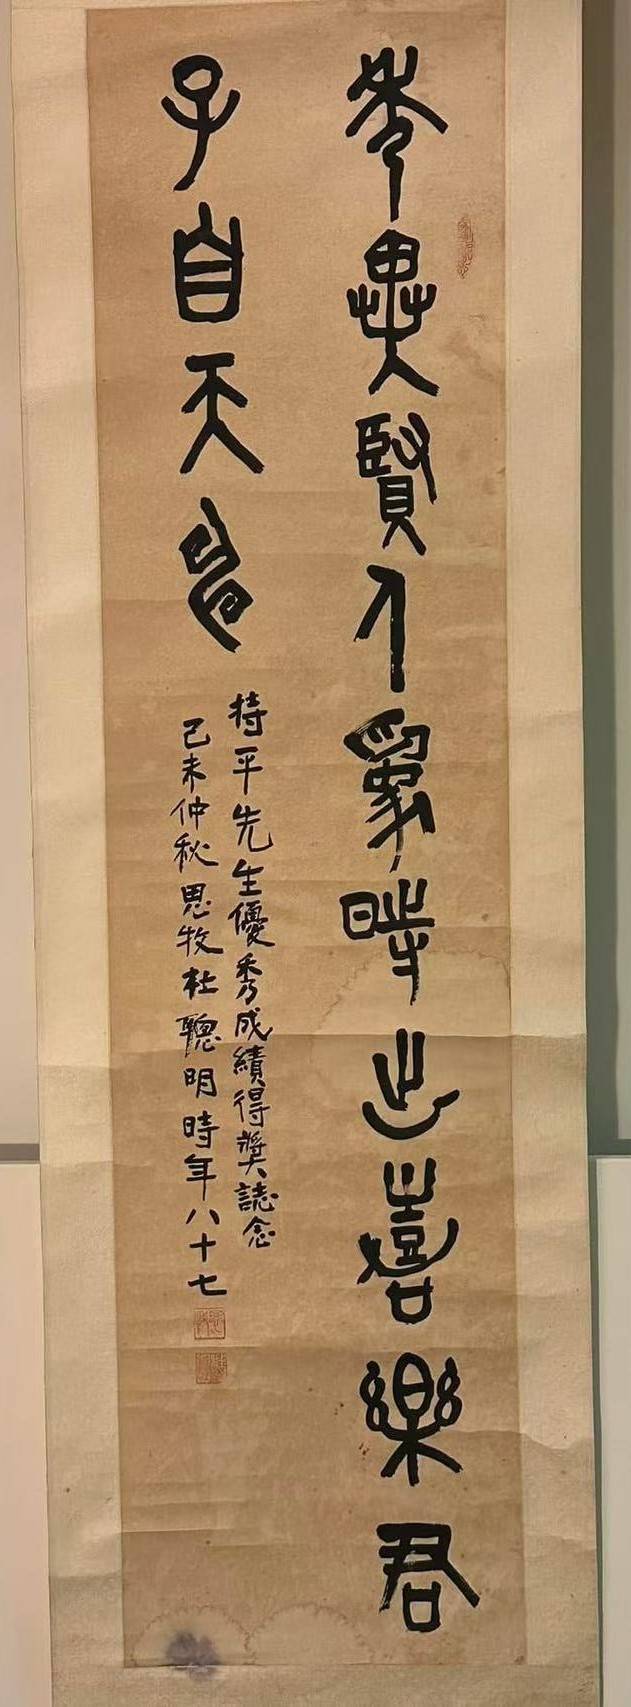 異賢人為時之嘉樂君
子自天申
持平先生優秀成績得獎誌念
己未仲秋思牧杜聰明時年八十七